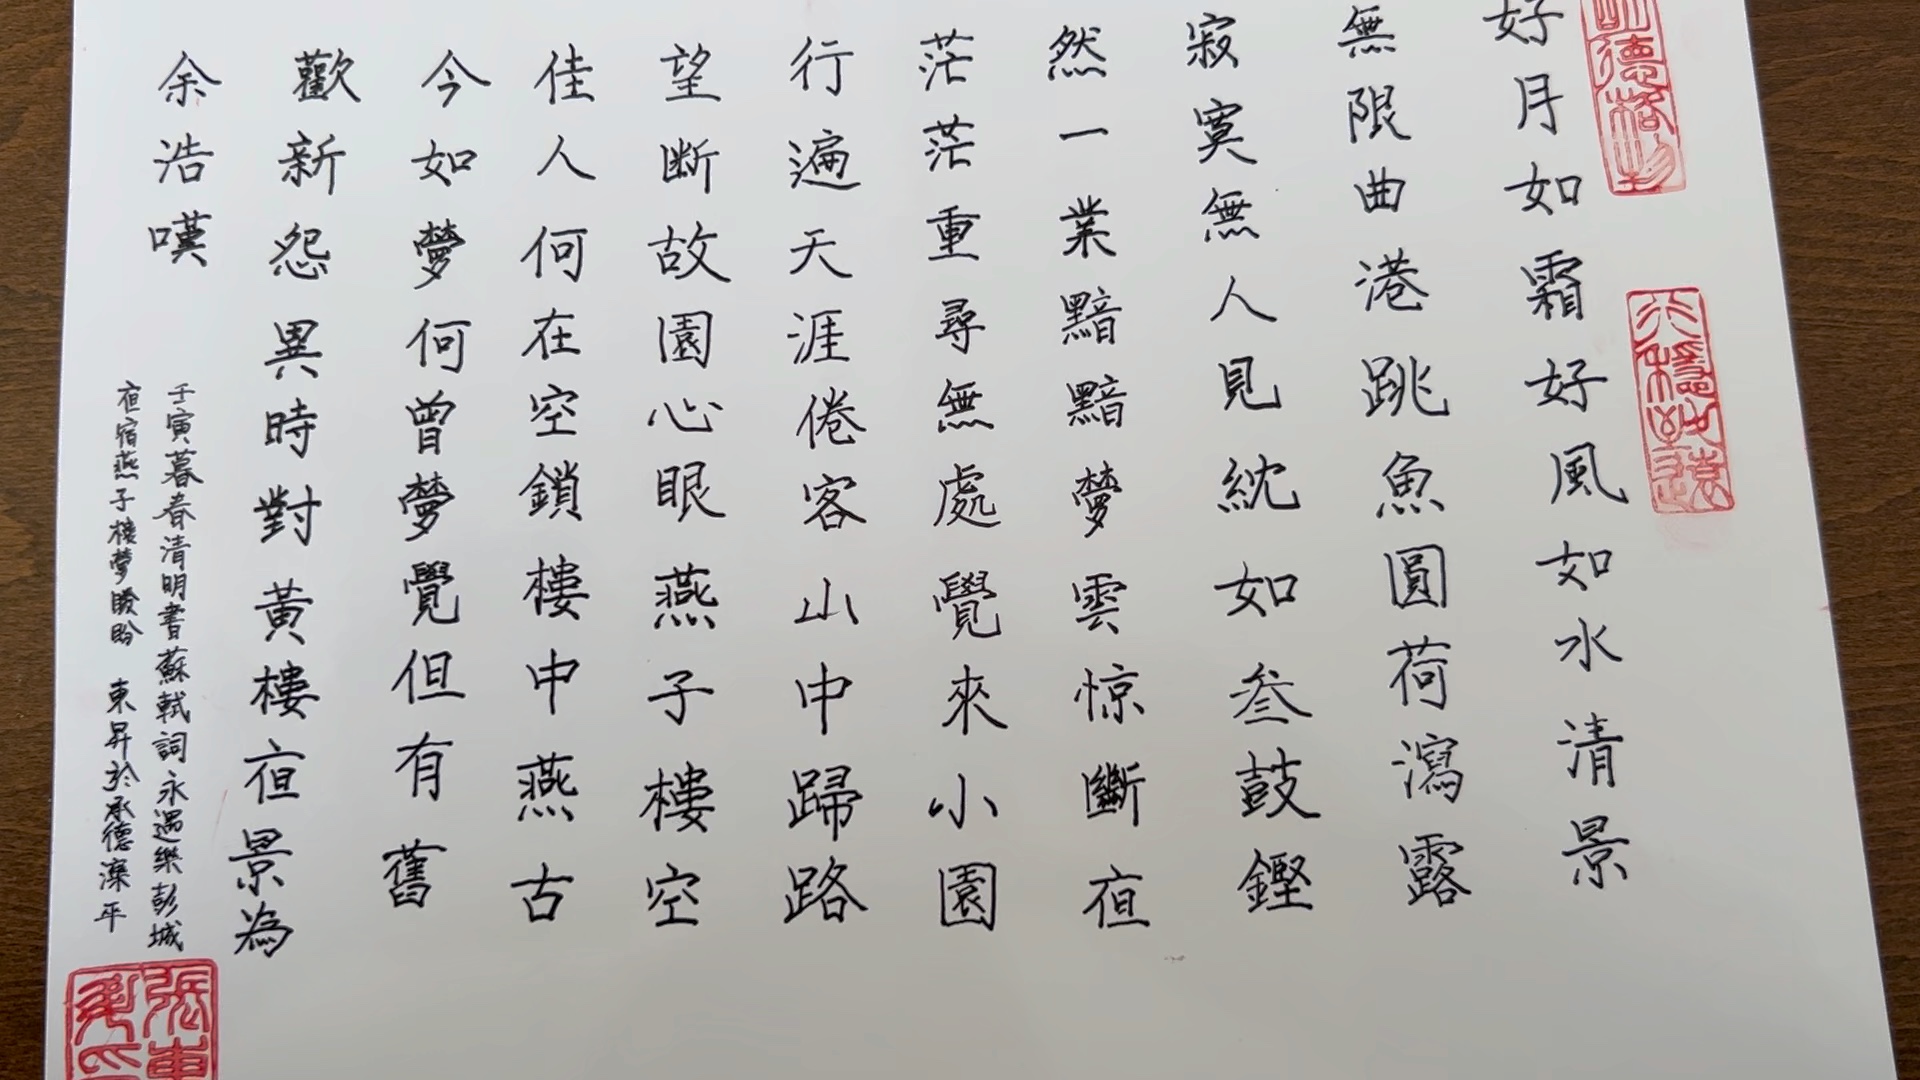 明德格物
行穩致遠
好月如霜好風如水清景
無限曲港跳魚圓荷瀉露
寂寞無人見紞如叁鼓鏗
然一業黯黯夢雲惊斷亱
茫茫重尋無處覺來小園
行遍天涯倦客山中歸路
望断故園心眼燕子樓空
佳人何在空鎖樓中燕古
今如夢何曾夢覺但有舊
歡新怨異時對黃樓亱景為
余浩嘆
壬寅暮春清明書蘇軾詞永遇樂彭城
亱宿燕子樓夢盼盼 東昇於承德灤平
張東
昇印